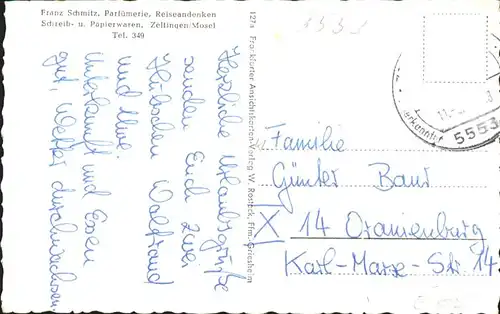 Franz Schmitz, Parfümerie, Reiseandenken
Schreib- u. Papierwaren, Zeltingen/Mosel
Tel. 349
Herzliche Urlaubsgrüße
senden Euch zwei
Hübschen Waltraud
und Uwe
Unterkunft und Essen
gut, Wetter durchwachsen
Frankfurter Ansichtskarten-Verlag W. Rosteck, Ffm.-Griesheim
5553
Familie
Günter Baur
X 14 Oranienburg
Karl-Marx-Str 14